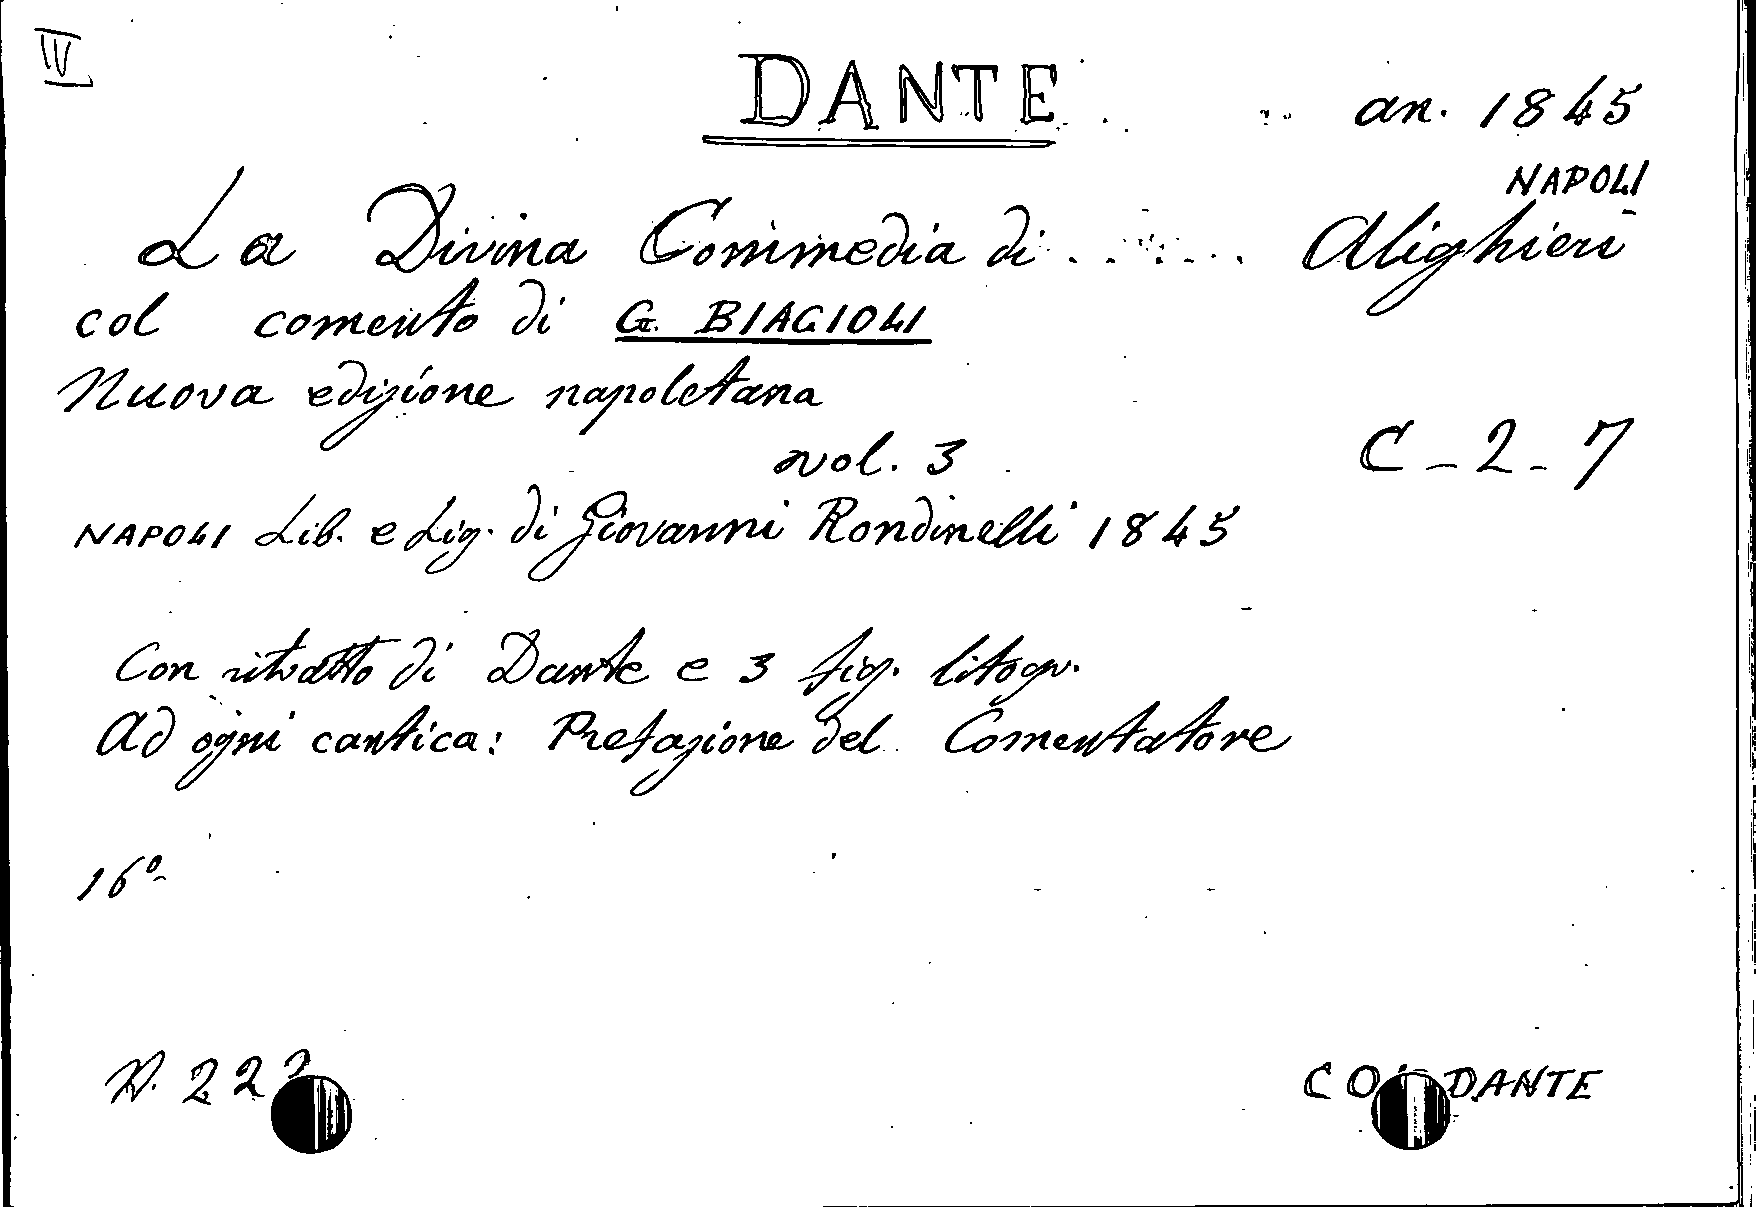 IV
DANTE
an. 1845
NAPOLI
La Divina Commedia di ........ Alighieri
col comento di G. BIAGIOLI
Nuova edizione napoletana
vol. 3
C-2-7
NAPOLI Lib. e Lig. di Giovanni Rondinelli 1845
Con ritratto di Dante e 3 fig. litogr.
Ad ogni cantica: Prefazione del Comentatore
16º
N. 22
DANTE